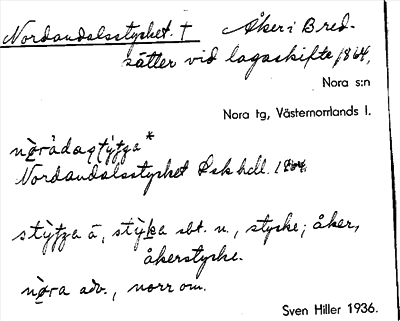 Nordandalsstycket. † Åker i Bred-
sätter vid lagaskifte 1864,
Nora s:n
Nora tg, Västernorrlands l.
Nordandalsstycket Lsk hdl. 1864.
a, sbt. n., stycke; åker,
åkerstycke.
adv., norr om.
Sven Hiller 1936.